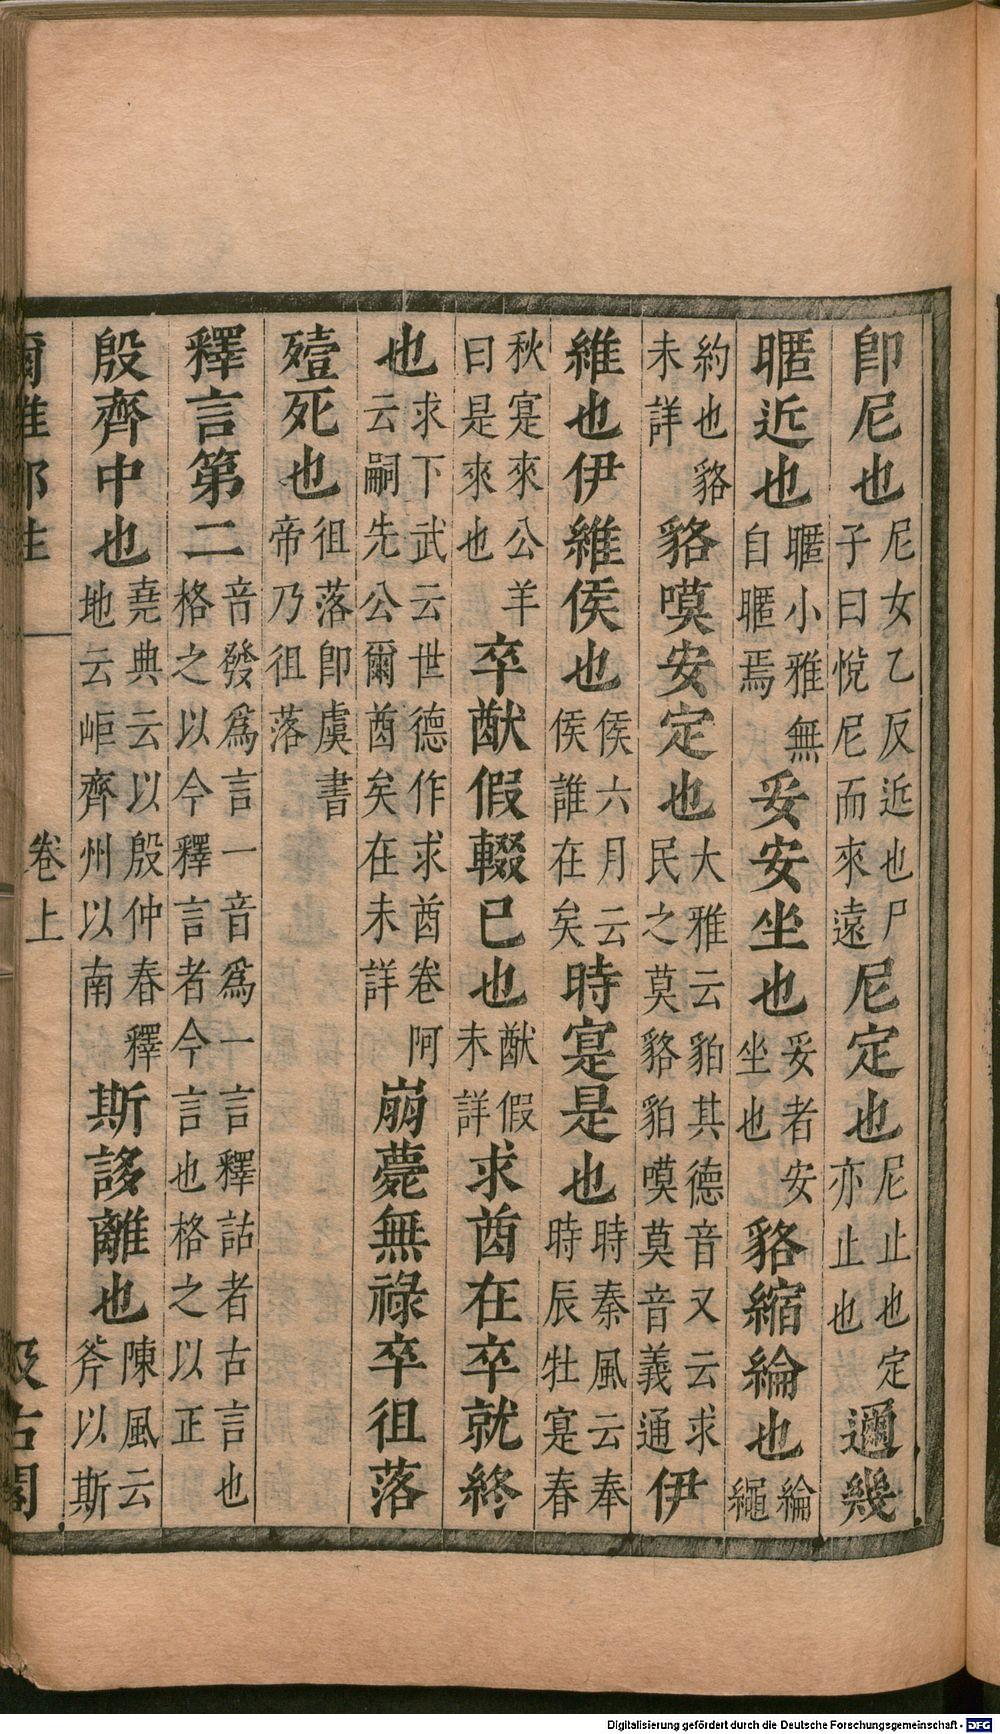 卽尼也尼女乙反近也尸子曰悅尼而來遠尼定也尼止也定亦止也邇幾
暱近也暱小雅無自暱焉妥安坐也妥者安坐也貉縮綸也綸繩
約也貉未詳貉嗼安定也大雅云貊其德音又云求民之莫貉貊嗼莫音義通伊
維也伊維侯也侯六月云侯誰在矣時寔是也時秦風云奉時辰牡寔春
秋寔來公羊曰是來也卒猷假輟已也猷假未詳求酋在卒就終
也求下武云世德作求酋卷阿云嗣先公爾酋矣在未詳崩薨無祿卒徂落
殪死也徂落卽虞書帝乃徂落
釋言第二音發爲言一音爲一言釋詁者古言也格之以今釋言者今言也格之以正
殷齊中也堯典云以殷仲春釋地云岠齊州以南斯誃離也陳風云斧以斯
爾雅郭注 卷上 汲古閣
Digitalisierung gefördert durch die Deutsche Forschungsgemeinschaft - DFG